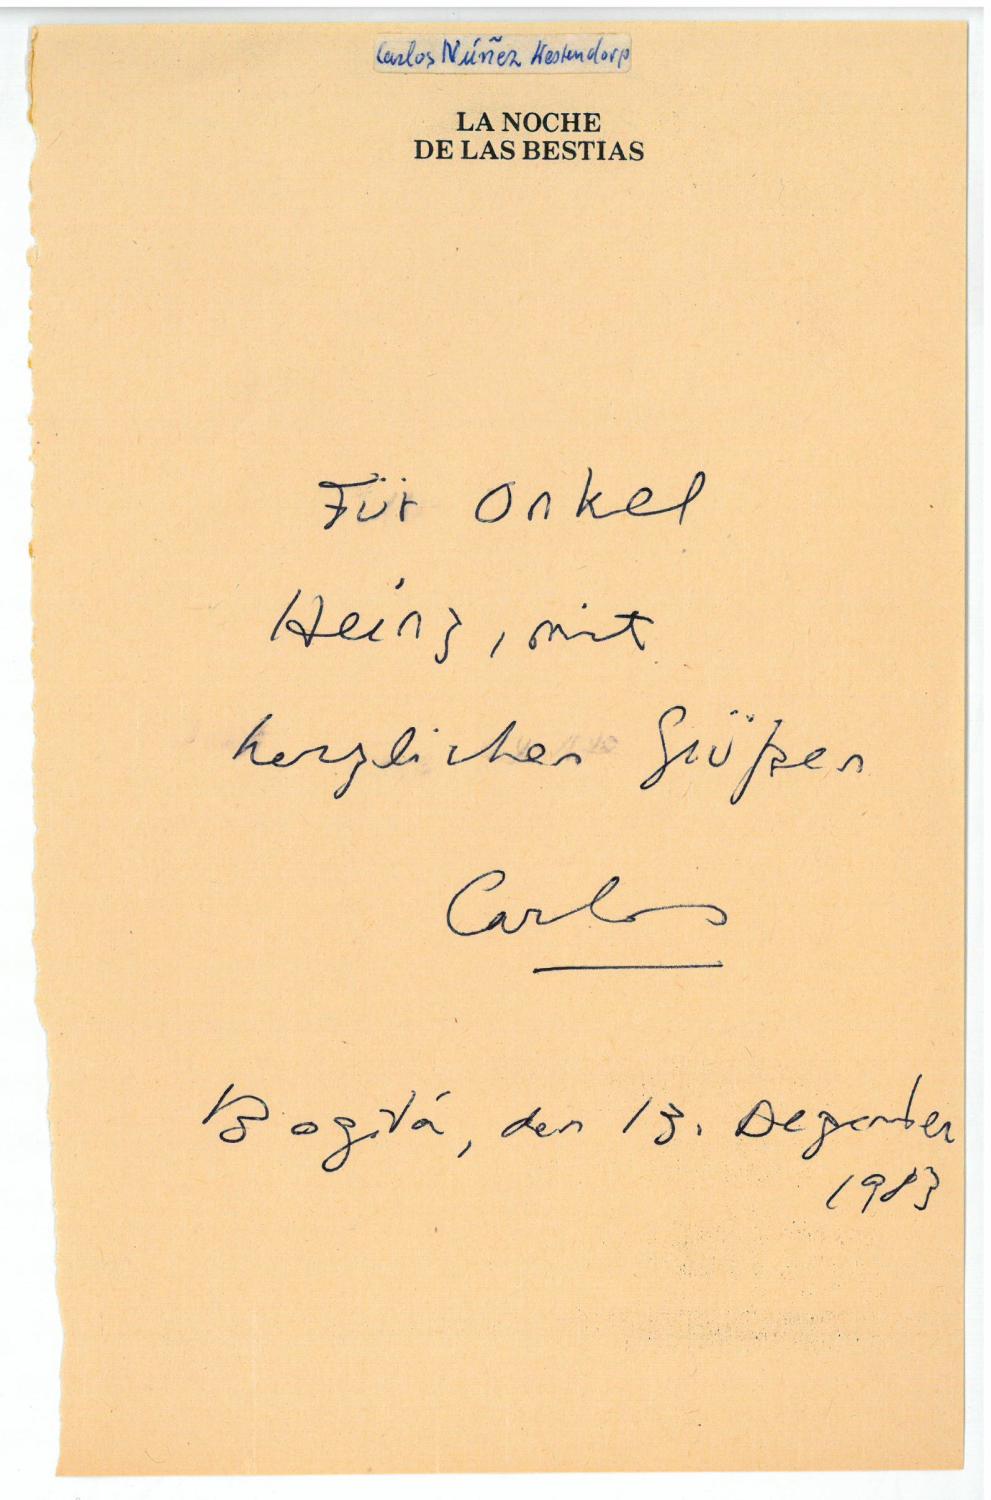 Carlos Núñez Westendorp
LA NOCHE
DE LAS BESTIAS
Für Onkel
Heinz, mit
herzlichen Grüßen
Carlos
Bogotá, den 13. Dezember
1983